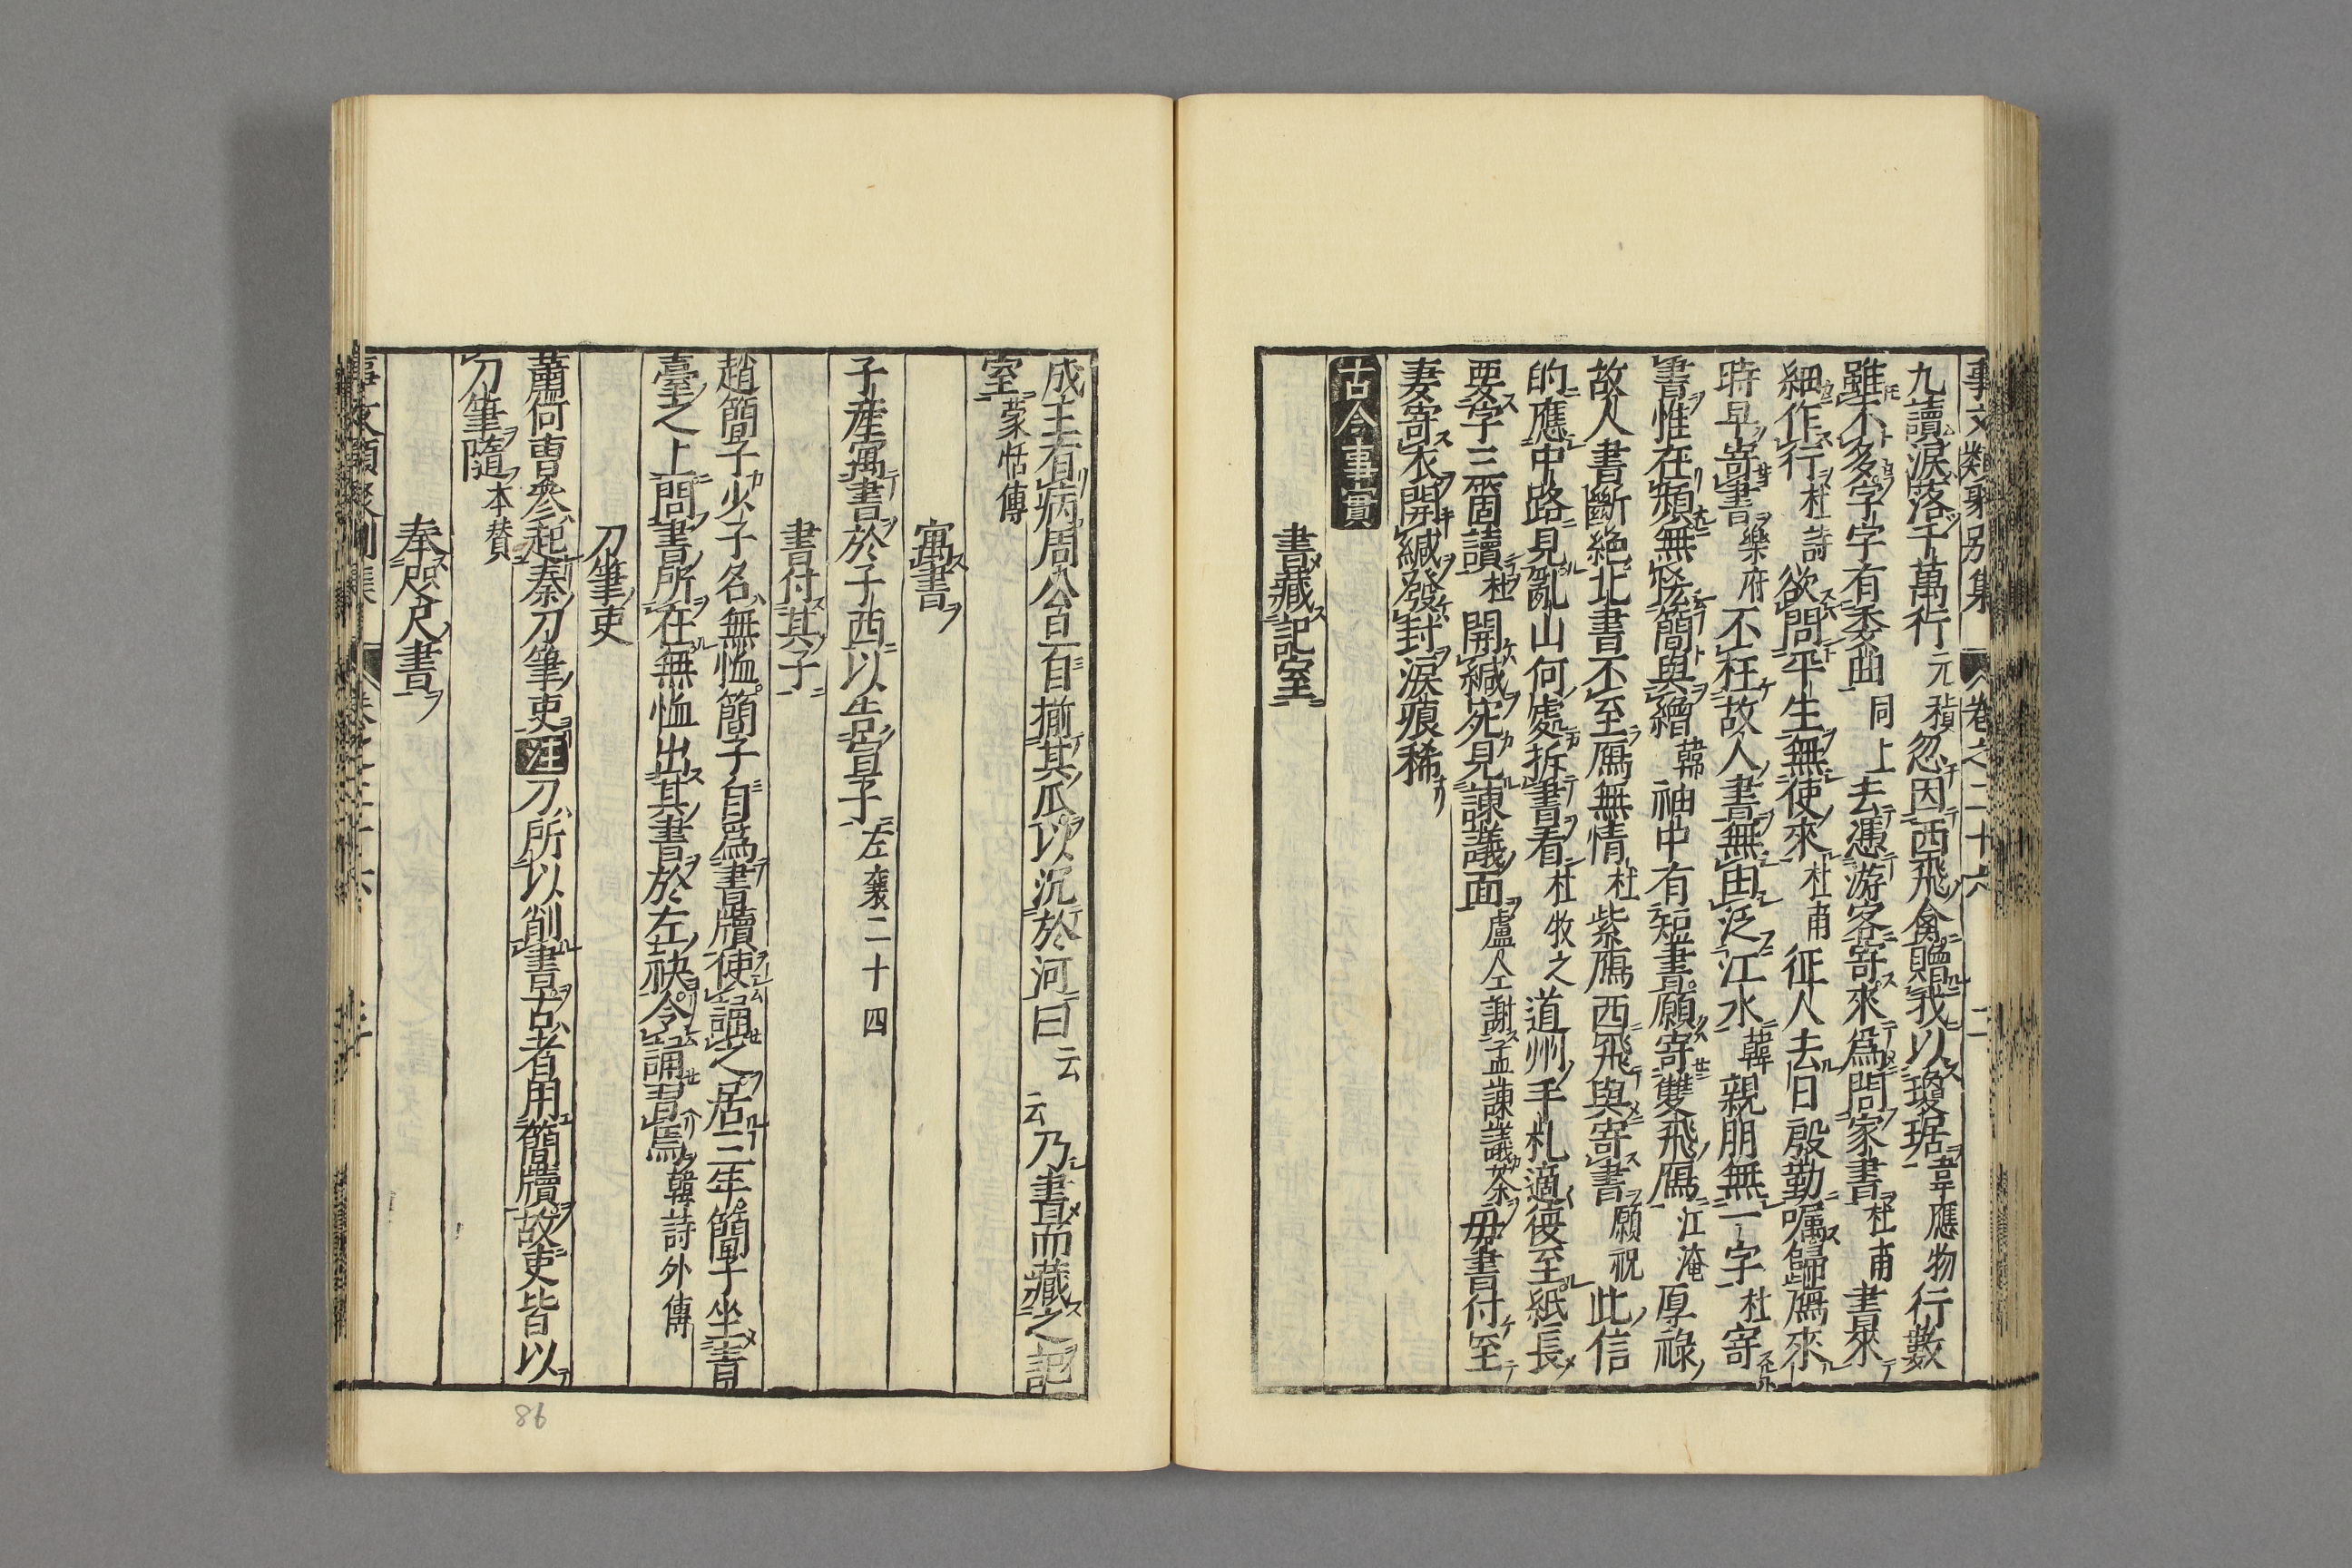 事文類聚別集 卷之二十六 二
九讀淚落千萬行元稹忽因西飛禽贈我以瓊琚韋應物行數
雖不多字字有委曲同上去憑游客寄來爲問家書杜甫書來
細作行杜詩欲問平生無使來杜甫征人去日殷勤嘱歸鴈來
時早寄書樂府不枉故人書無由泛江水韓親朋無一字杜寄
書惟在頻無恡簡與繒韓袖中有短書願寄雙飛鴈江淹厚祿
故人書斷絶北書不至鴈無情杜紫鴈西飛與寄書願祝此信
的應中路見亂山何處拆書看杜牧之道州手札適復至紙長
要字三箇讀杜開緘宛見諫議面盧仝謝孟諫議茶毋書付至
妻寄衣開緘發封淚痕稀
古今事實
書藏記室
成王有病周公旦自揃其瓜以沉於河曰云云乃書而藏之記
室蒙恬傳
寓書
子産寓書於子西以告宣子左襄二十四
書付其子
趙簡子少子名無恤簡子自爲書牘使誦之居三年簡子坐青
臺之上問書所在無恤出其書於左袂令誦習焉韓詩外傳
刀筆吏
蕭何曹參起秦刀筆吏注刀所以削書古者用簡牘故吏皆以
刀筆隨本賛
奉咫尺書
事文類聚別集 卷之二十六 三
86